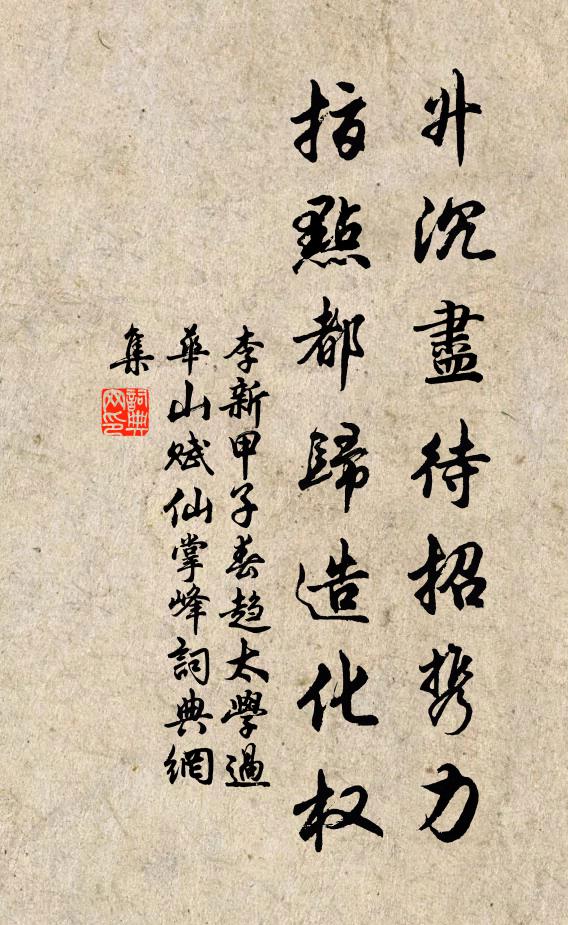 升沉盡待招携力
指點都歸造化权
李新甲子春趋太學過
華山賦仙掌峰詞典網
集
詞典網印